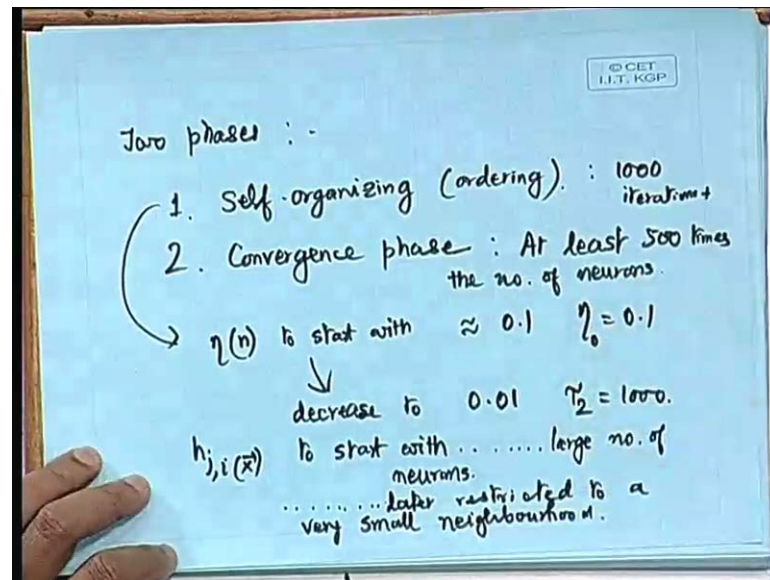 © CET
I.I.T. KGP
Two phases : -
1. Self-organizing (ordering). : 1000
iterations
2. Convergence phase : At least 500 times
the no. of neurons.
η(n) to start with ≈ 0.1 η₀ = 0.1
decrease to 0.01 τ₂ = 1000.
h j,i(x⃗) to start with ........ large no. of
neurons.
........ later restricted to a
very small neighbourhood.